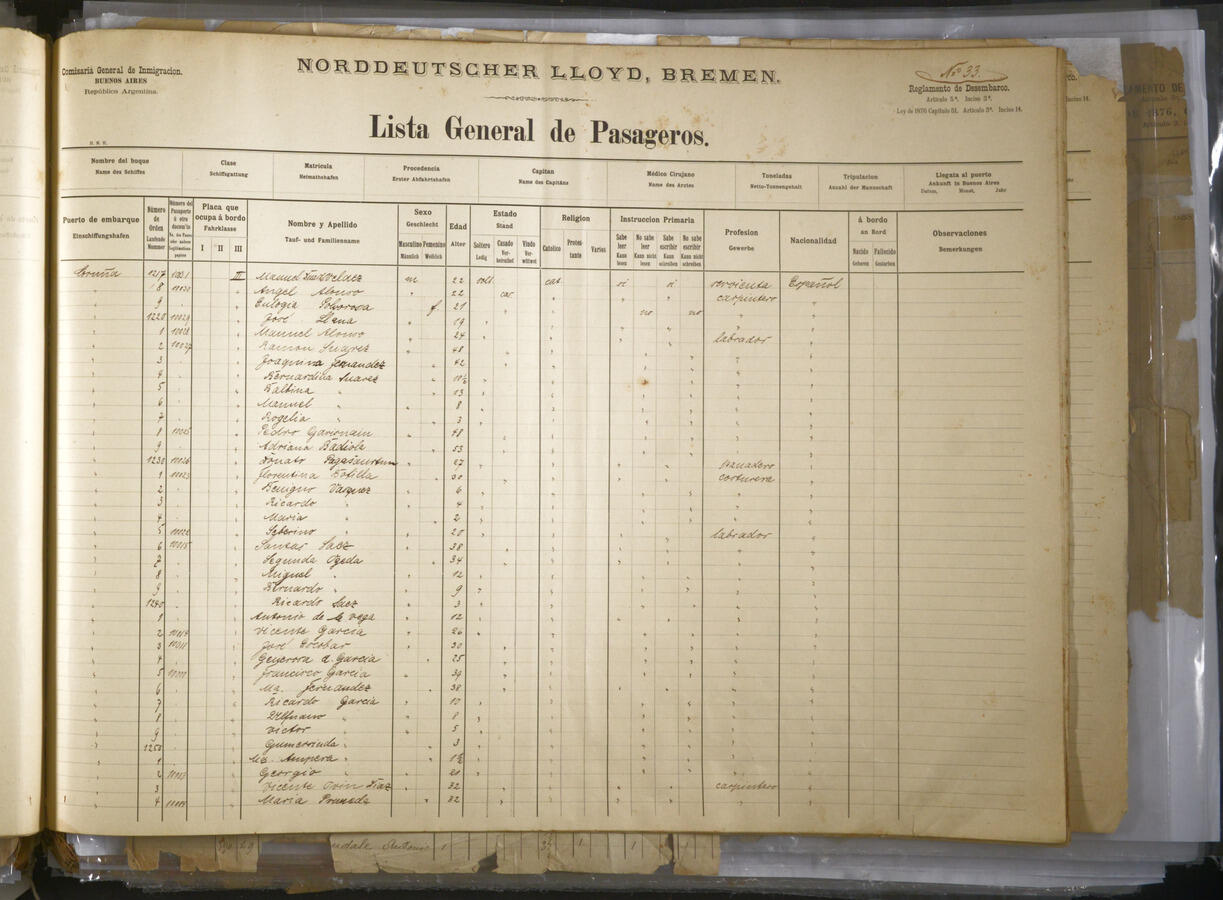 Comisaria General de Inmigracion.
BUENOS AIRES
República Argentina.
NORDDEUTSCHER LLOYD, BREMEN.
No 33.
Reglamento de Desembarco.
Artículo 5º. Inciso 3º.
Ley de 1876 Capítulo 51. Artículo 3º. Inciso 14.
Lista General de Pasageros.
Nombre del buque
Name des Schiffes
Clase
Schiffsgattung
Matrícula
Heimathshafen
Procedencia
Erster Abfahrtshafen
Capitan
Name des Capitäns
Médico Cirujano
Name des Arztes
Toneladas
Netto-Tonnengehalt
Tripulacion
Anzahl der Mannschaft
Llegata al puerto
Ankunft in Buenos Aires
Datum, Monat, Jahr
Puerto de embarque
Einschiffungshafen
Número de Orden
Laufende Nummer
Placa que ocupa á bordo
Fahrklasse
I II III
Nombre y Apellido
Tauf- und Familienname
Sexo
Geschlecht
Masculino Femenino
Männlich Weiblich
Edad
Alter
Estado
Stand
Soltero Casado Viudo
Ledig Verheirathet Verwittwet
Religion
Catolico Protestante Varios
Instruccion Primaria
Sabe leer No sabe leer Sabe escribir No sabe escribir
Kann lesen Kann nicht lesen Kann schreiben Kann nicht schreiben
Profesion
Gewerbe
Nacionalidad
á bordo
an Bord
Nacido Fallecido
Geboren Gestorben
Observaciones
Bemerkungen
Coruña 1217 III Manuel m 22 solt. cat. si si sirvienta Español
8 Angel Alonso " 22 cas. " " " carpintero "
9 Eulogia f. 21 " no no "
1220 10029 José Llena " 19
1 10028 Manuel Alonso " 24 labrador
2 10027 Ramon Suarez " 48
3 Joaquina Fernandez " 42
4 Bernardina Suarez
5 Balbina " 13
6 Manuel " 8
7 Rogelia " 3
8 10025 Pedro 48
9 Adriana Badiola " 53
1230 10026 27 panadero
1 10023 Florentina Botilla " 30 costurera
2 Benigno Vazquez " 6
3 Ricardo " 4
4 Maria " 2
5 Seberino " 20 labrador
6 Santas Saez " 38
7 Segunda Ojeda " 34
8 Miguel " 12
9 Bernardo " 9
1240 Ricardo Saez " 3
1 Antonio de la Vega " 12
2 Vicente Garcia " 26
3 José Escobar " 30
4 Generosa d. Garcia " 25
5 Francisco Garcia " 39
6 Ma. Fernandez " 38
7 Ricardo Garcia " 10
8 " 8
9 Victor " 5
1250 Gumersinda " 3
1 Ma. Ampera "
2 Georgio " 20
3 Vicente 32 carpintero
4 Maria Pruneda " 32